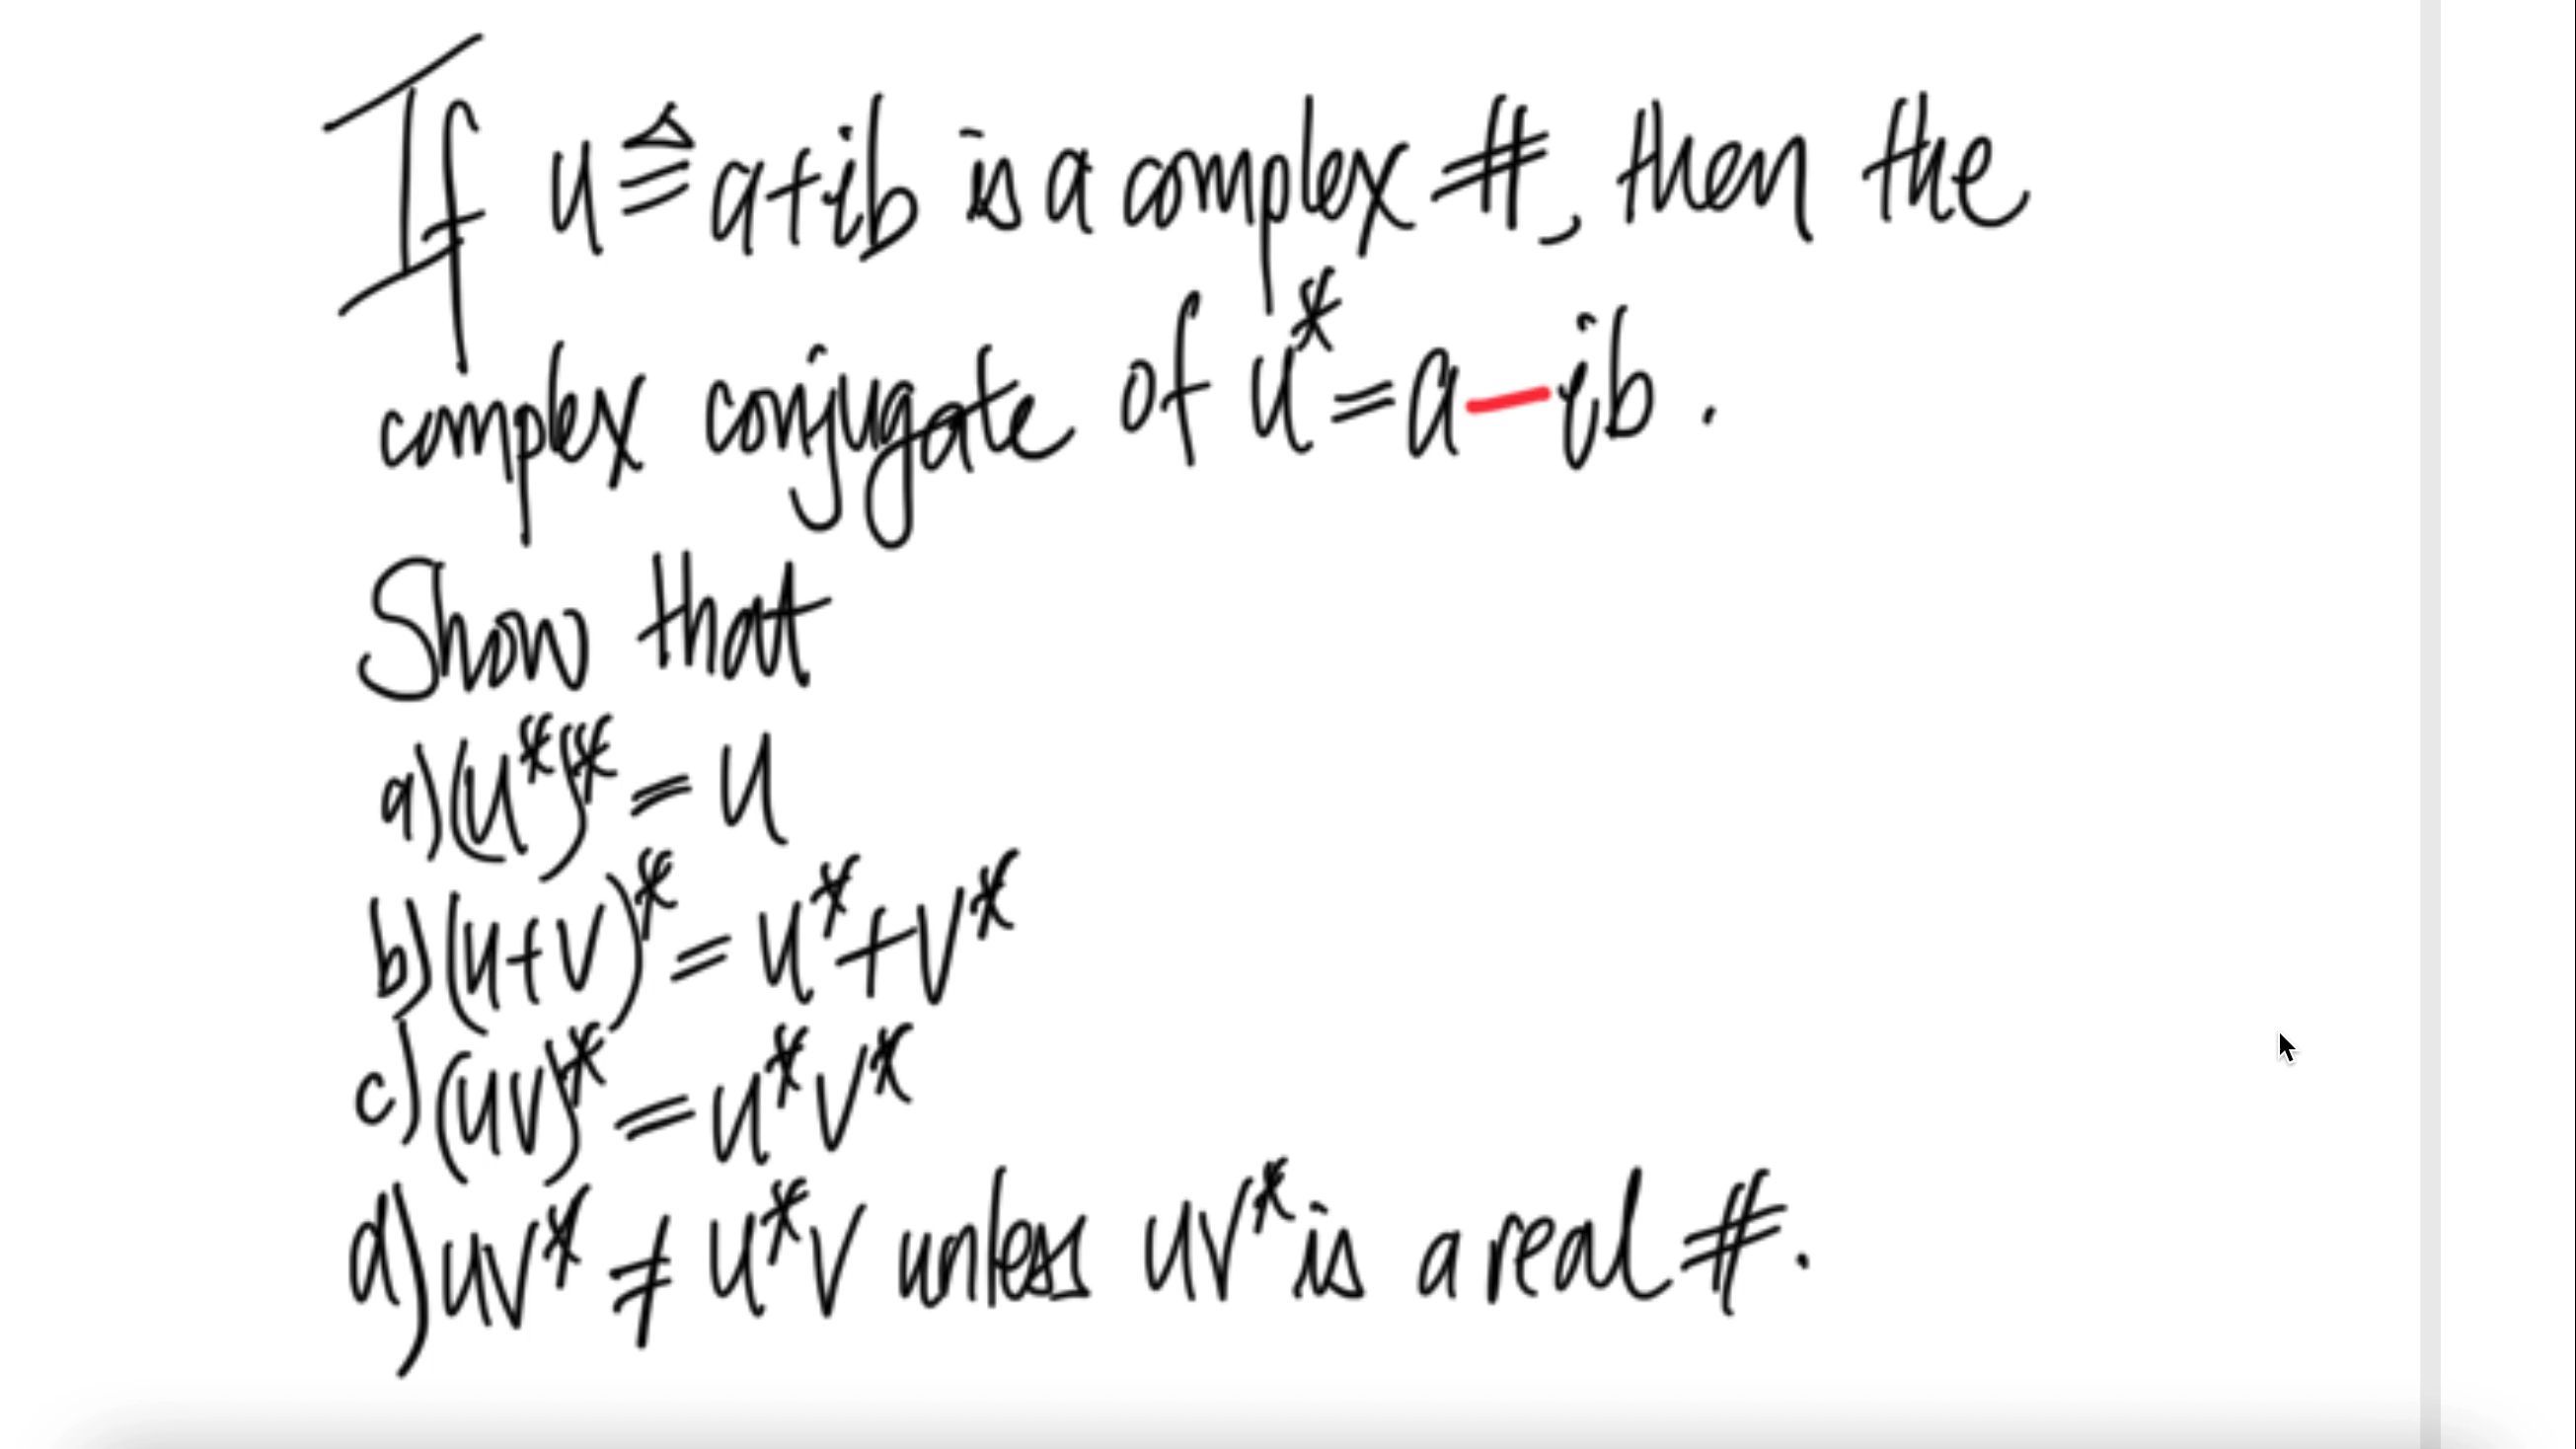 If u ≙ a+ib is a complex #, then the
complex conjugate of u* = a-ib.
Show that
a) (u*)* = u
b) (u+v)* = u*+v*
c) (uv)* = u*v*
d) uv* ≠ u*v unless uv* is a real #.